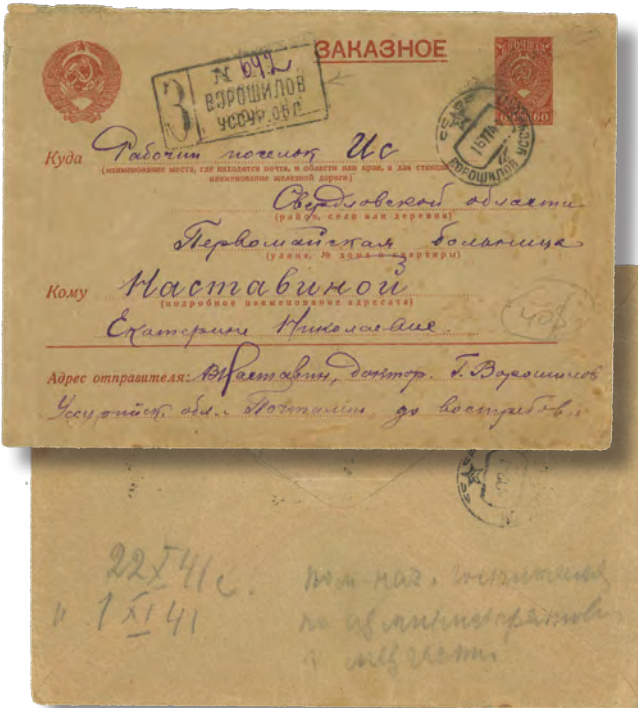 ЗАКАЗНОЕ
ПОЧТА
60 60
З
N 692
ВОРОШИЛОВ
УССУР. ОБЛ
ВОРОШИЛОВ УССУР
Куда Рабочий поселок Ис
(наименование места, где находится почта, и области или края, а для станции
наименование железной дороги)
Свердловской области
(район, село или деревня)
Первомайская больница
(улица, № дома и квартиры)
Кому Наставиной
(подробное наименование адресата)
Екатерине Николаевне.
Адрес отправителя: ВНаставин, доктор. Г. Ворошилов
Уссурийск. обл. Почтамт, до востребов.
40$
22 X 41 г.
" 1 XI 41
пом нач.
по административ
и мед части